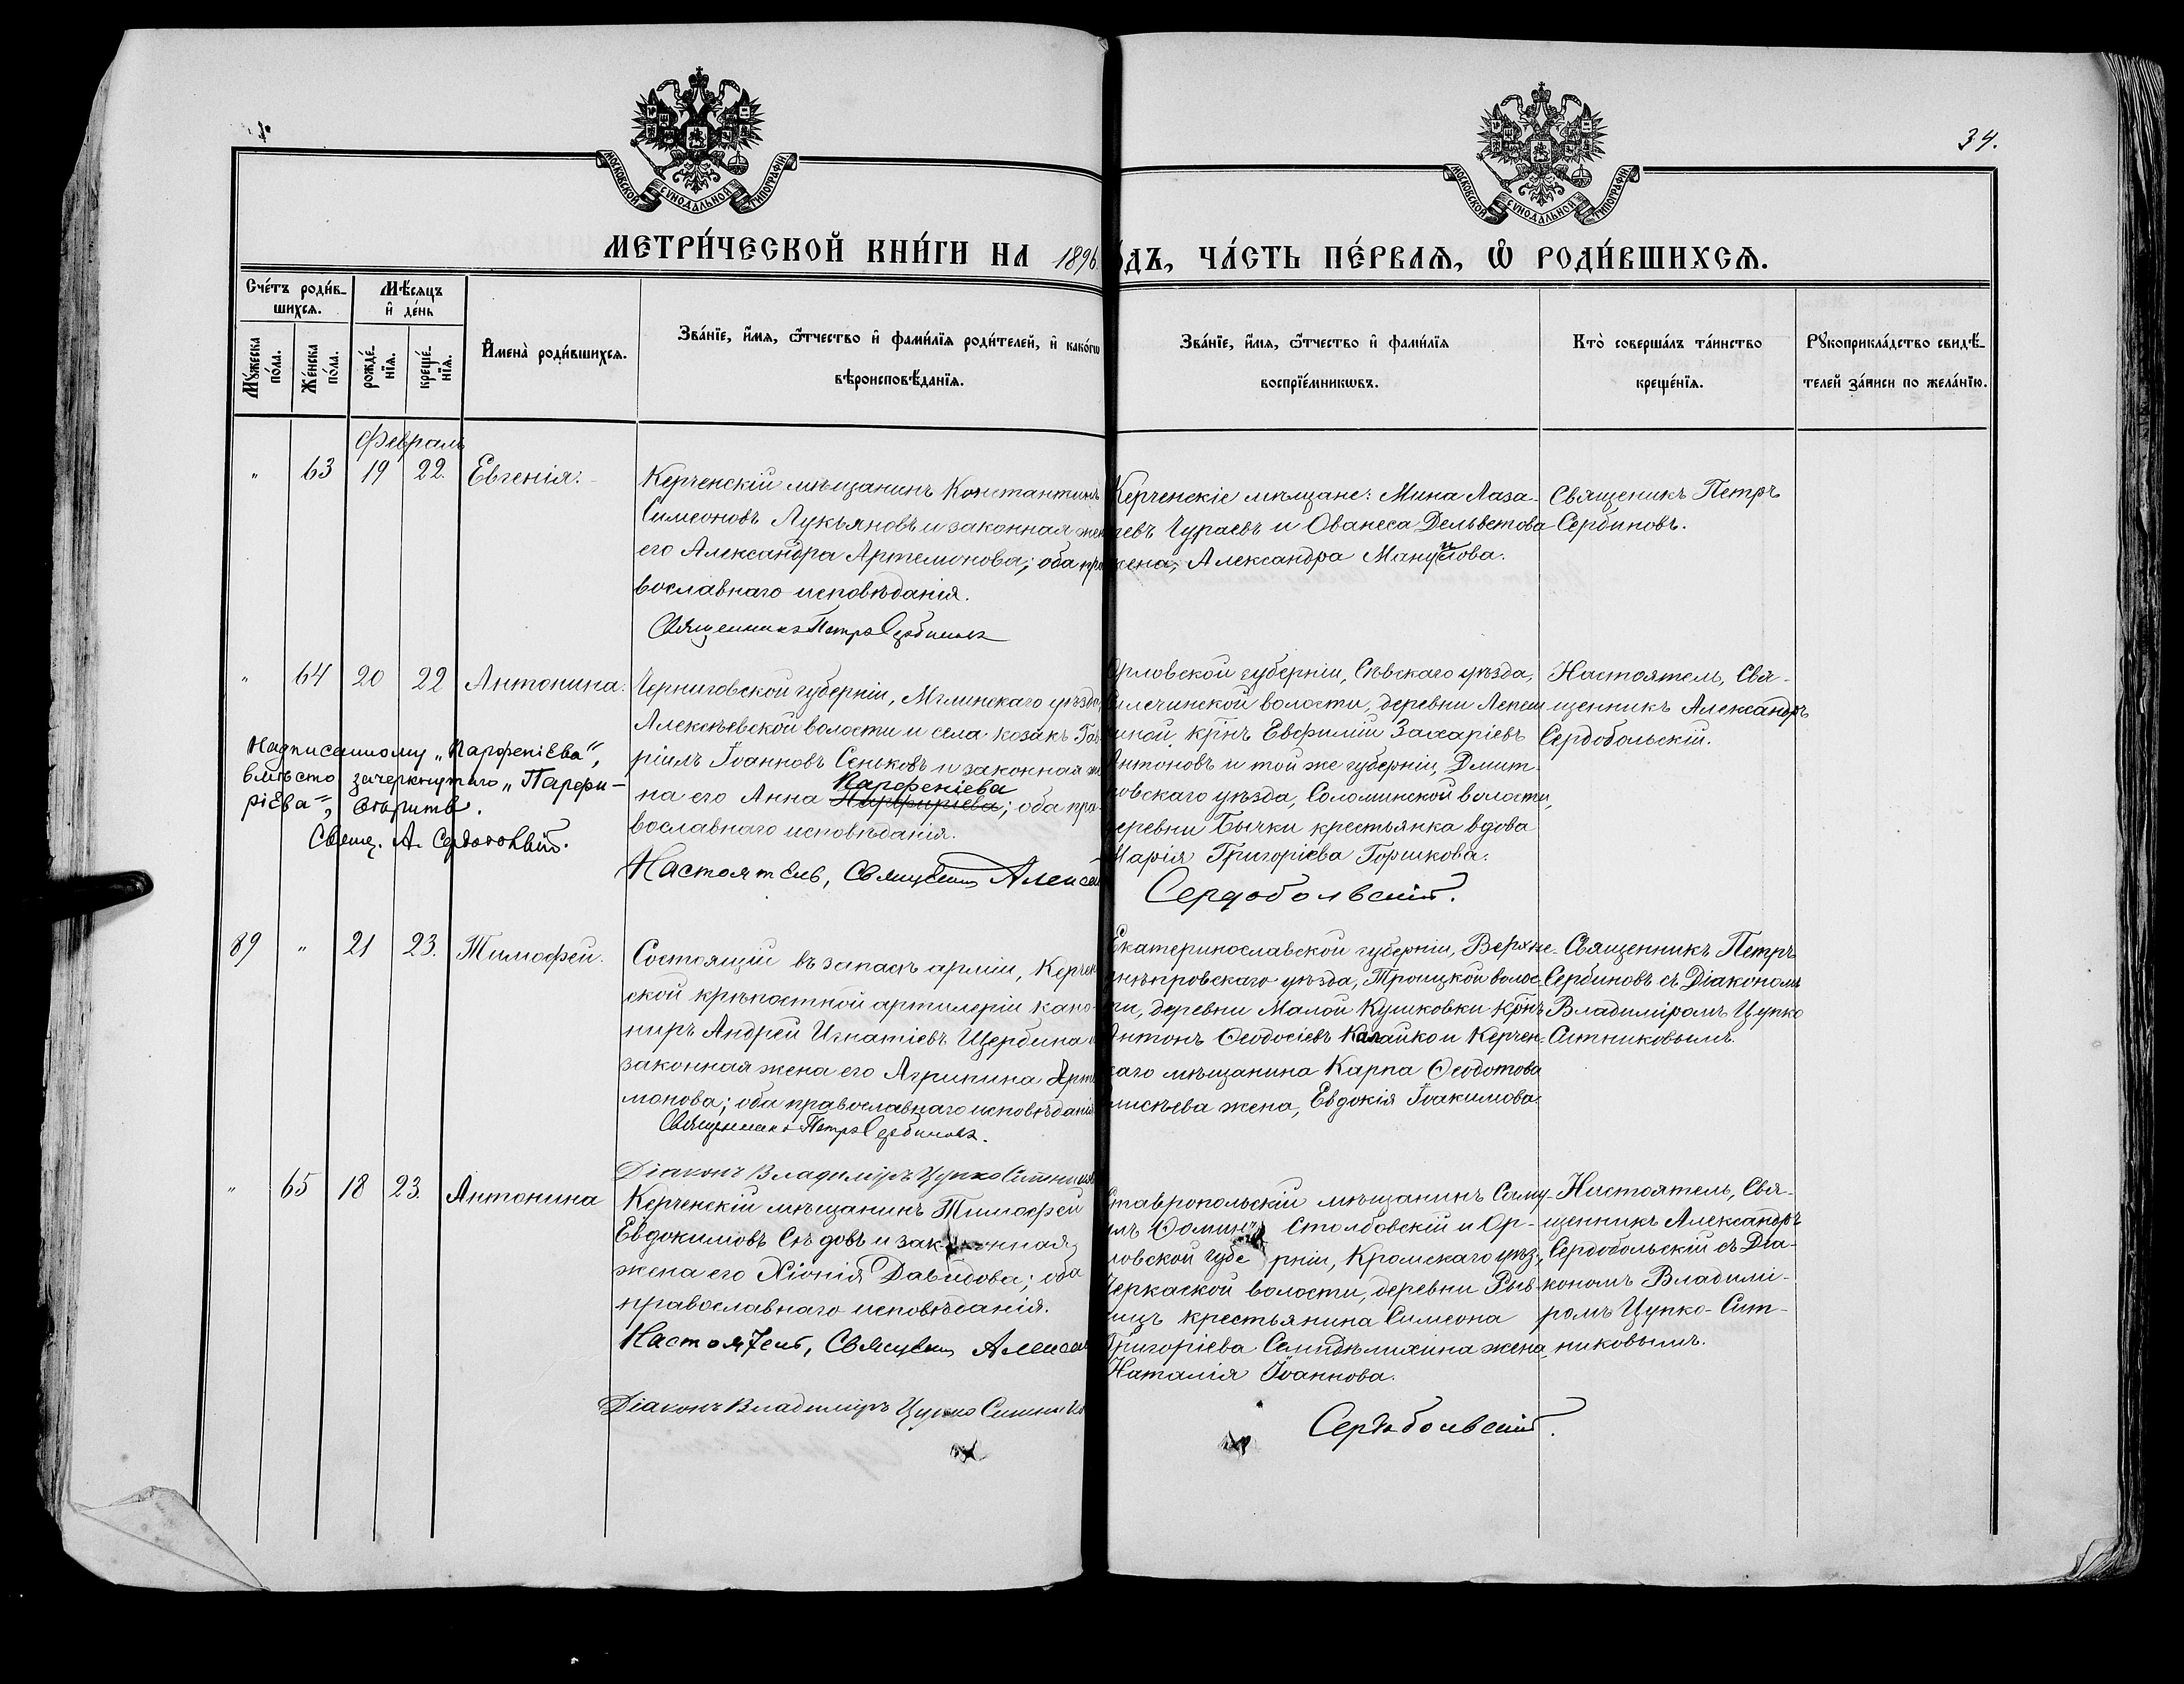 34.
МОСКОВСКОЙ СѴНОДАЛЬНОЙ ТИПОГРАФІИ
МОСКОВСКОЙ СѴНОДАЛЬНОЙ ТИПОГРАФІИ
МЕТРИ́ЧЕСКОЙ КНИ́ГИ НА 1896 ДЪ, ЧА́СТЬ ПЕ́РВАѦ, Ѡ РОДИ́ВШИХСѦ.
Сче́тъ роди́в-
шихсѧ.
Мѣ́сѧцъ
и҆ де́нь
Мꙋжеска
по́ла.
Же́нска
по́ла.
рожде́-
нїѧ.
креще́-
нїѧ.
И҆мена̀ роди́вшихсѧ.
Зва́нїе, и҆́мѧ, ѻ҆́тчество и҆ фами́лїѧ роди́телей, и҆ како́гѡ
вѣроисповѣ́данїѧ.
Зва́нїе, и҆́мѧ, ѻ҆́тчество и҆ фами́лїѧ
воспрїе́мникѡвъ.
Кто̀ соверша́лъ та́инство
креще́нїѧ.
Рꙋкоприкла́дство свидѣ́-
телей за́писи по жела́нїю.
Февраль
" 63 19 22. Евгенія.
Керченскій мѣщанинъ Константинъ
Симеоновъ Лукьяновъ и законная жен
его Александра Артемонова; оба пра
вославнаго исповѣданія.
Священникъ Петръ Сербиновъ
Керченскіе мѣщане: Мина Лаза-
ревъ Чураевъ и Ованеса Дельветова
жена, Александра Мануйлова.
Священикъ Петръ
Сербиновъ.
" 64 20 22 Антонина.
Черниговской губерніи, Мглинскаго уѣзда,
Алексѣевской волости и села козакъ Гав
ріилъ Іоанновъ Сеньковъ и законная же
Парфеніева
на его Анна Парфиріева; оба пра-
вославнаго исповѣданія.
Настоятель, Священ. Алексан
Надписанному "Парфеніева",
вмѣсто зачеркнутаго "Парфи-
ріева", вѣрить.
Свящ. А. Сердобольскій.
Орловской губерніи, Сѣвскаго уѣзда,
волости, деревни
кр̃нъ Евфимій Захаріевъ
Антоновъ и той же губерніи, Дмит-
ровскаго уѣзда, Соломинской волости,
деревни Бычки крестьянка вдова
Марія Григоріева Горшкова.
Сердобольскій.
Настоятель, Свя-
щенникъ Александръ
Сердобольскій.
89 " 21 23. Тимофей.
Состоящій въ запасѣ арміи, Керчен
ской крѣпостной артилеріи кано-
ниръ Андрей Игнатіевъ Щербина и
законная жена его Агрипина Арте
монова; оба православнаго исповѣданія
Священникъ Петръ Сербиновъ.
Діаконъ Владиміръ Цупко Ситников
Екатеринославской губерніи, Верхне-
днѣпровскаго уѣзда, Троицкой волос-
ти, деревни Малой Кушковки кр̃нъ
Антонъ Ѳеодосіевъ Калайко и Керчен-
скаго мѣщанина Карпа Ѳеодотова
жена, Евдокія Іоакимова.
Священникъ Петръ
Сербиновъ съ Діакономъ
Владиміромъ Цупко
Ситниковымъ.
" 65 18 23. Антонина
Керченскій мѣщанинъ Тимофей
Евдокимовъ Сѣдовъ и законная
жена его Хіонія Давидова; оба
православнаго исповѣданія.
Настоятель, Священ. Алексан
Діаконъ Владиміръ Цупко Ситников
Ставропольскій мѣщанинъ Саму-
илъ Ѳоминъ Столбовскій и Ор-
ловской губерніи, Кромскаго уѣз.,
Черкаской волости, деревни Рыв-
ницъ крестьянина Симеона
Григоріева Семидѣлихина жена,
Наталія Іоаннова.
Сердобольскій.
Настоятель, Свя-
щенникъ Александръ
Сердобольскій съ Діа-
кономъ Владимі-
ромъ Цупко-Сит-
никовымъ.